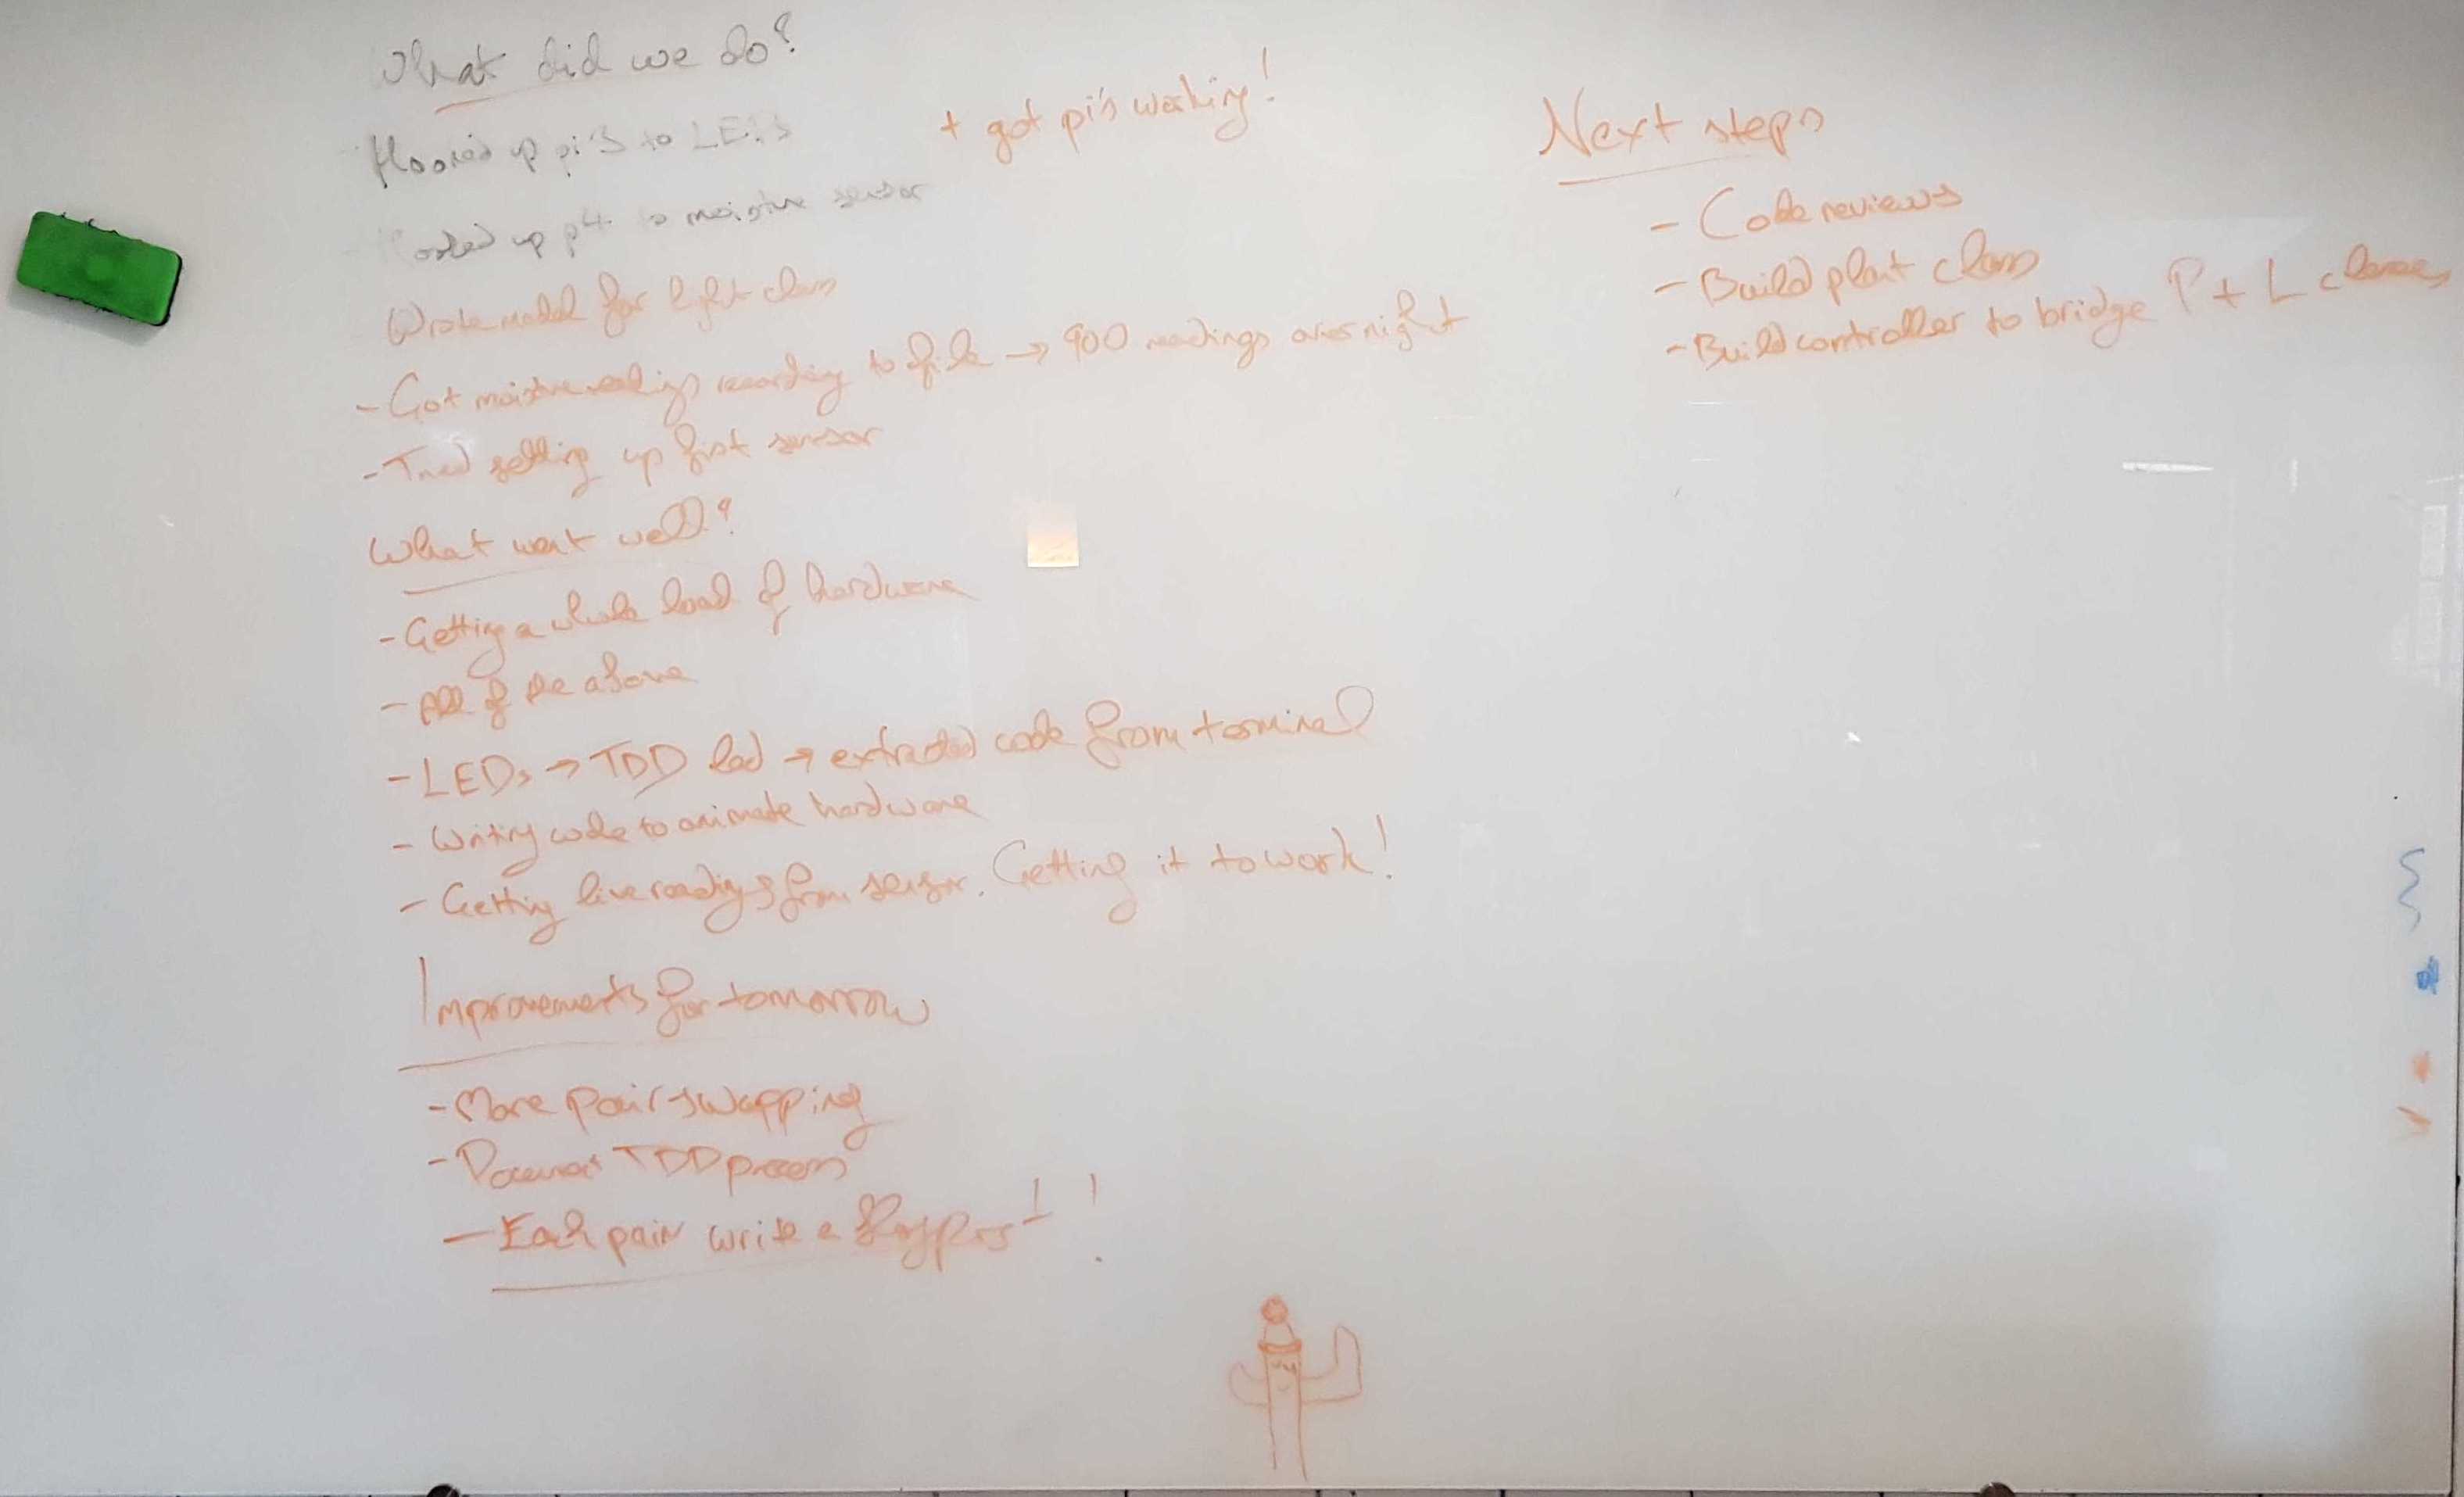 What did we do?
Hooked up pi's to LEDs
+ got pi's working!
Hooked up to moisture sensor
Wrote model for light class
- Got moisture readings recording to file → 900 readings overnight
- Tried setting up first sensor
What went well?
- Getting a whole load of hardware
- All of the above
- LEDs → TDD led → extracted code from terminal
- Writing code to animate hardware
- Getting live readings from sensor. Getting it to work!
Improvements for tomorrow
- More pair swapping
- Document TDD process
- Each pair write a blogpost!
Next steps
- Code reviews
- Build plant class
- Build controller to bridge P + L classes